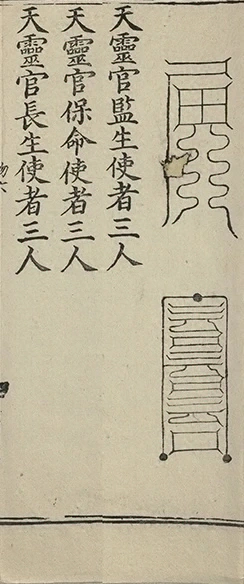 天靈官監生使者三人
天靈官保命使者三人
天靈官長生使者三人